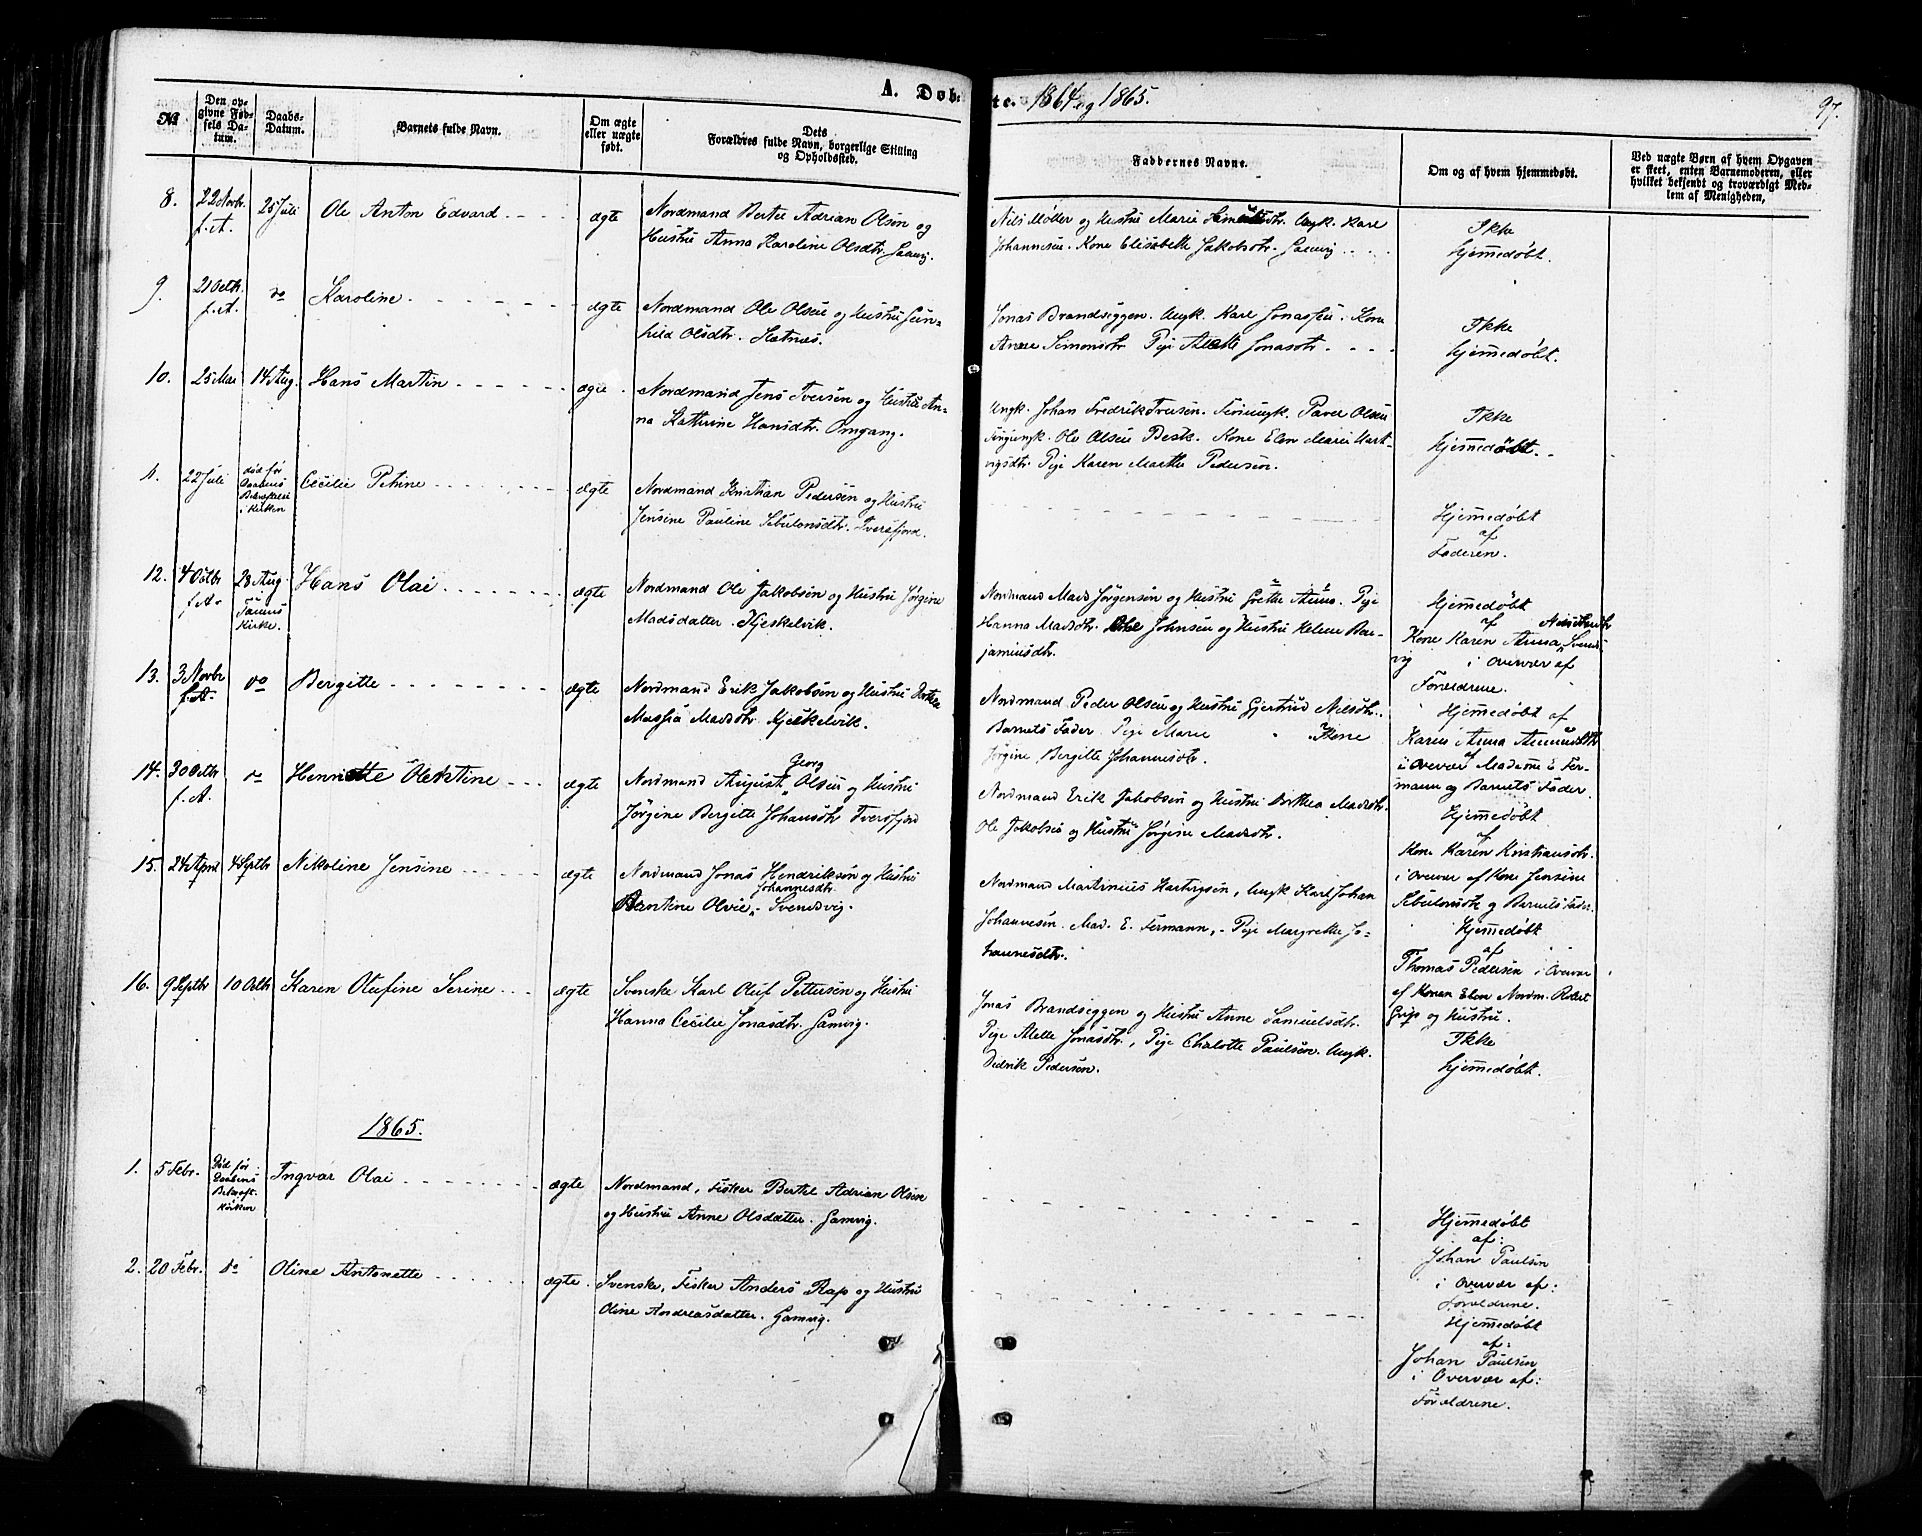 A. Døbte. 1864 og 1865.
97.
№
Den opgivne Fødsels Datum.
Daabs-Datum.
Barnets fulde Navn.
Om ægte eller uægte født.
Dets Forældres fulde Navn, borgerlige Stilling og Opholdssted.
Faddernes Navne.
Om og af hvem hjemmedøbt.
Ved uægte Børn af hvem Opgaven er skeet, enten Barnemoderen, eller hvilket bekjendt og troværdigt Medlem af Menigheden.
8. 22 Novbr f. A. 25 Juli Ole Anton Edvard ægte
Nordmand Berte Adrian Olsen og
Hustru Anna Karoline Olsdtr. Gamvig.
Nils Møller og Hustru Marie Samuelsdtr. Ungk. Karl
Johannesen. Kone Elisabeth Jakobsdtr. Gamvig
Ikke
hjemmedøbt.
9. 21 Octbr. f. A. do Karoline ægte
Nordmand Ole Olsen og Hustru Gun-
hild Olsdtr.
Jonas Brandseggen. Ungk. Karl Jonassen. Kone
Anne Simonsdtr Pige Alette Jonasdtr
Ikke
hjemmedøbt.
10. 25 Mai 14 Aug. Hans Martin ægte
Nordmand Jens Iversen og Hustru An-
na Kathrine Hansdtr. Omgang.
Ungk. Johan Fredrik Iversen. Ungk. Paver Olsen
Ungk. Ole Olsen Besk. Kone Elen Marie Hart-
vigsdtr. Pige Karen Marthe Pedersen.
Ikke
hjemmedøbt.
11. 22 Juli død før Daabens Bekræftelse i Kirken Cecilie Petrine ægte
Nordmand Kristian Pedersen og Hustru
Jensine Pauline Sebulonsdtr. Tversfjord.
Hjemmedøbt
af
Faderen.
12. 4 Octbr f. A. 28 Aug. i Tanens Kirke. Hans Olai ægte
Nordmand Ole Jakobsen og Hustru Jørgine
Madsdatter. Kjeskelvik.
Nordmand Mads Jørgensen og Hustru Grethe Anna. Pige
Hanna Madsdtr. Ole Johnsen og Hustru Helene Ben-
jaminsdtr.
Hjemmedøbt
af
Kone Karen Anna Svends-
vig i Overvær af
Forældrene.
13. 3 Novbr f. A. do Bergitte ægte
Nordmand Erik Jakobsen og Hustru Dorthea
Massia Madsdtr. Kjeskelvik.
Nordmand Peder Olsen og Hustru Gjertrud Nilsdtr.
Barnets Fader. Pige Marie Kone
Jørgine Bergitte Johannesdtr.
Hjemmedøbt af
Karen Anna Amundsdtr
i Overvær af Madame E. Fer-
mann og Barnets Fader.
14. 30 Octbr f. A. do Henriette Olentine ægte
Nordmand August Georg Olsen og Hustru
Jørgine Bergitte Johansdtr Tversfjord
Nordmand Erik Jakobsen og Hustru Dorthea Madsdtr.
Ole Jakobsen og Hustru Jørgine Madsdtr.
Hjemmedøbt
af
Kone Karen Kristiansdtr.
i Overvær af Kone Jensine
Sebulonsdtr og Barnets Fader.
15. 24 April 4 Septbr Nikoline Jensine ægte
Nordmand Jonas Hendriksen og Hustru
Bentine Olvie Johannesdtr. Svendsvig.
Nordmand Martinius Hartvigsen, Ungk Karl Johan
Johannesen. Mad. E. Fermann, Pige Margrethe Jo-
hannesdtr.
Hjemmedøbt
af
Thomas Pedersen i Overvær
af Konen Elen Nordm. Robert
Grip og Hustru.
16. 9 Septbr 10 Octbr Karen Olufine Serine ægte
Svenske Karl Oluf Pettersen og Hustru
Hanna Cecilie Jonasdtr. Gamvig.
Jonas Brandseggen og Hustru Anne Samuelsdtr.
Pige Alette Jonasdtr, Pige Charlotte Paulsen. Ungk.
Didrik Pedersen.
Ikke
hjemmedøbt.
1865.
1. 5 Febr. Død før Daabens Bekræft. i Kirken Ingvar Olai ægte
Nordmand, Fisker Bertel Adrian Olsen
og Hustru Anne Olsdatter. Gamvig.
Hjemmedøbt
af:
Johan Paulsen
i Overvær af:
Forældrene.
2. 20 Febr. do Oline Antonette ægte
Svenske, Fisker Anders Rap og Hustru
Oline Andreasdatter. Gamvig.
Hjemmedøbt
af:
Johan Paulsen
i Overvær af:
Forældrene.